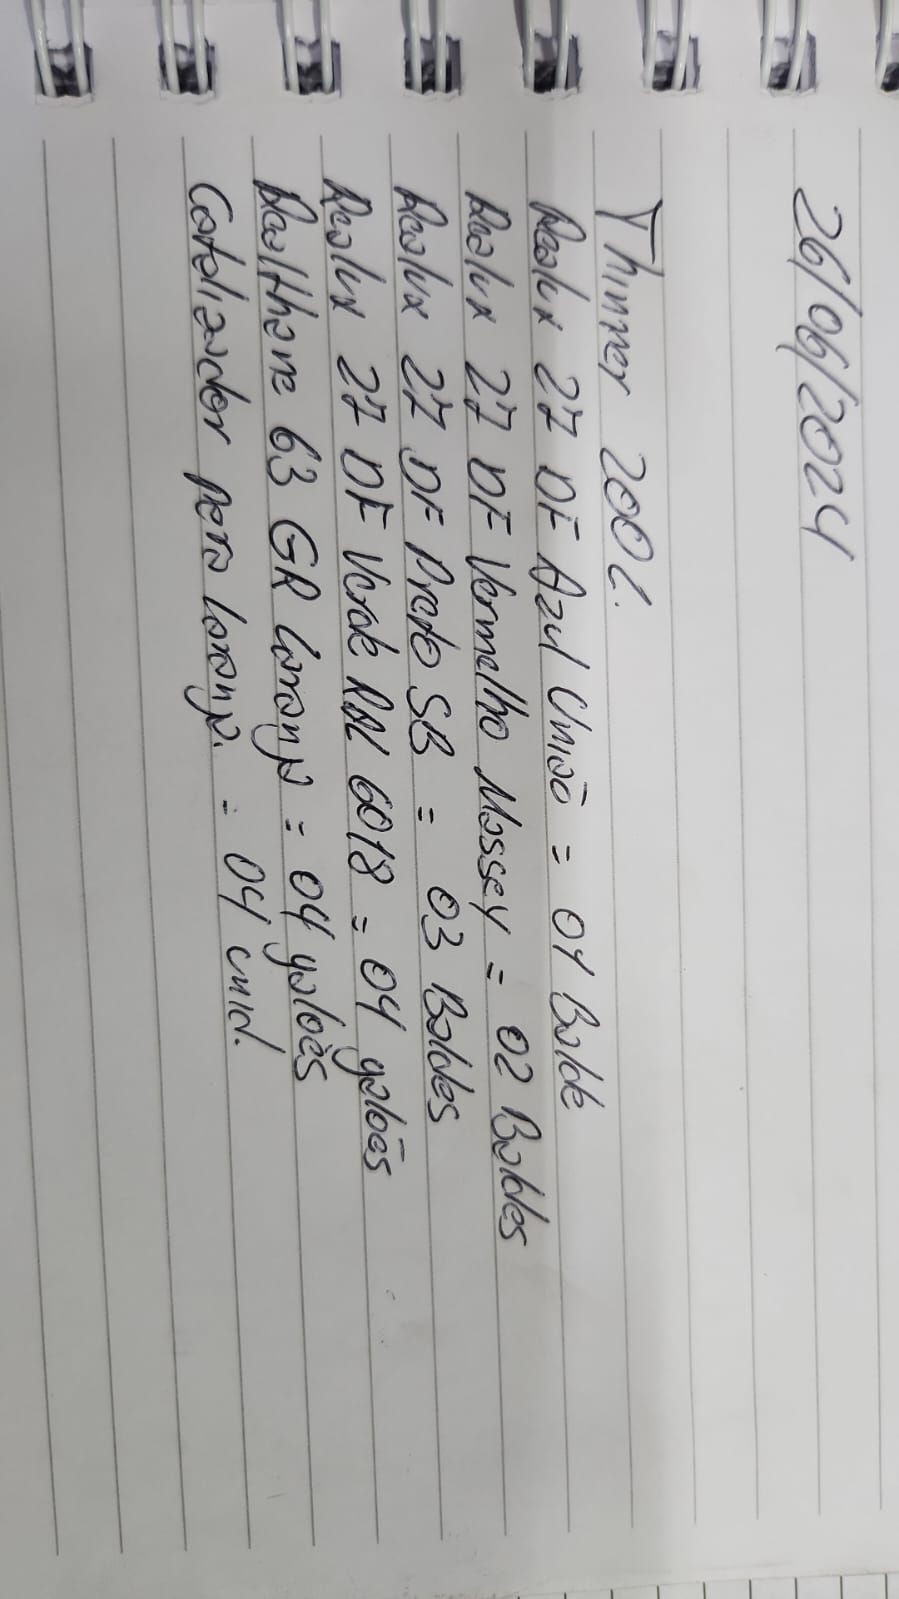 26/06/2024
Thinner 200L.
Realux 27 DF Azul União = 01 Balde
Realux 27 DF Vermelho Massey = 02 Baldes
Realux 27 DF Preto SB = 03 Baldes
Realux 27 DF Verde RAL 6018 = 04 galões
Realthane 63 GR laranja = 04 galões
Catalizador para laranja. = 04 unid.